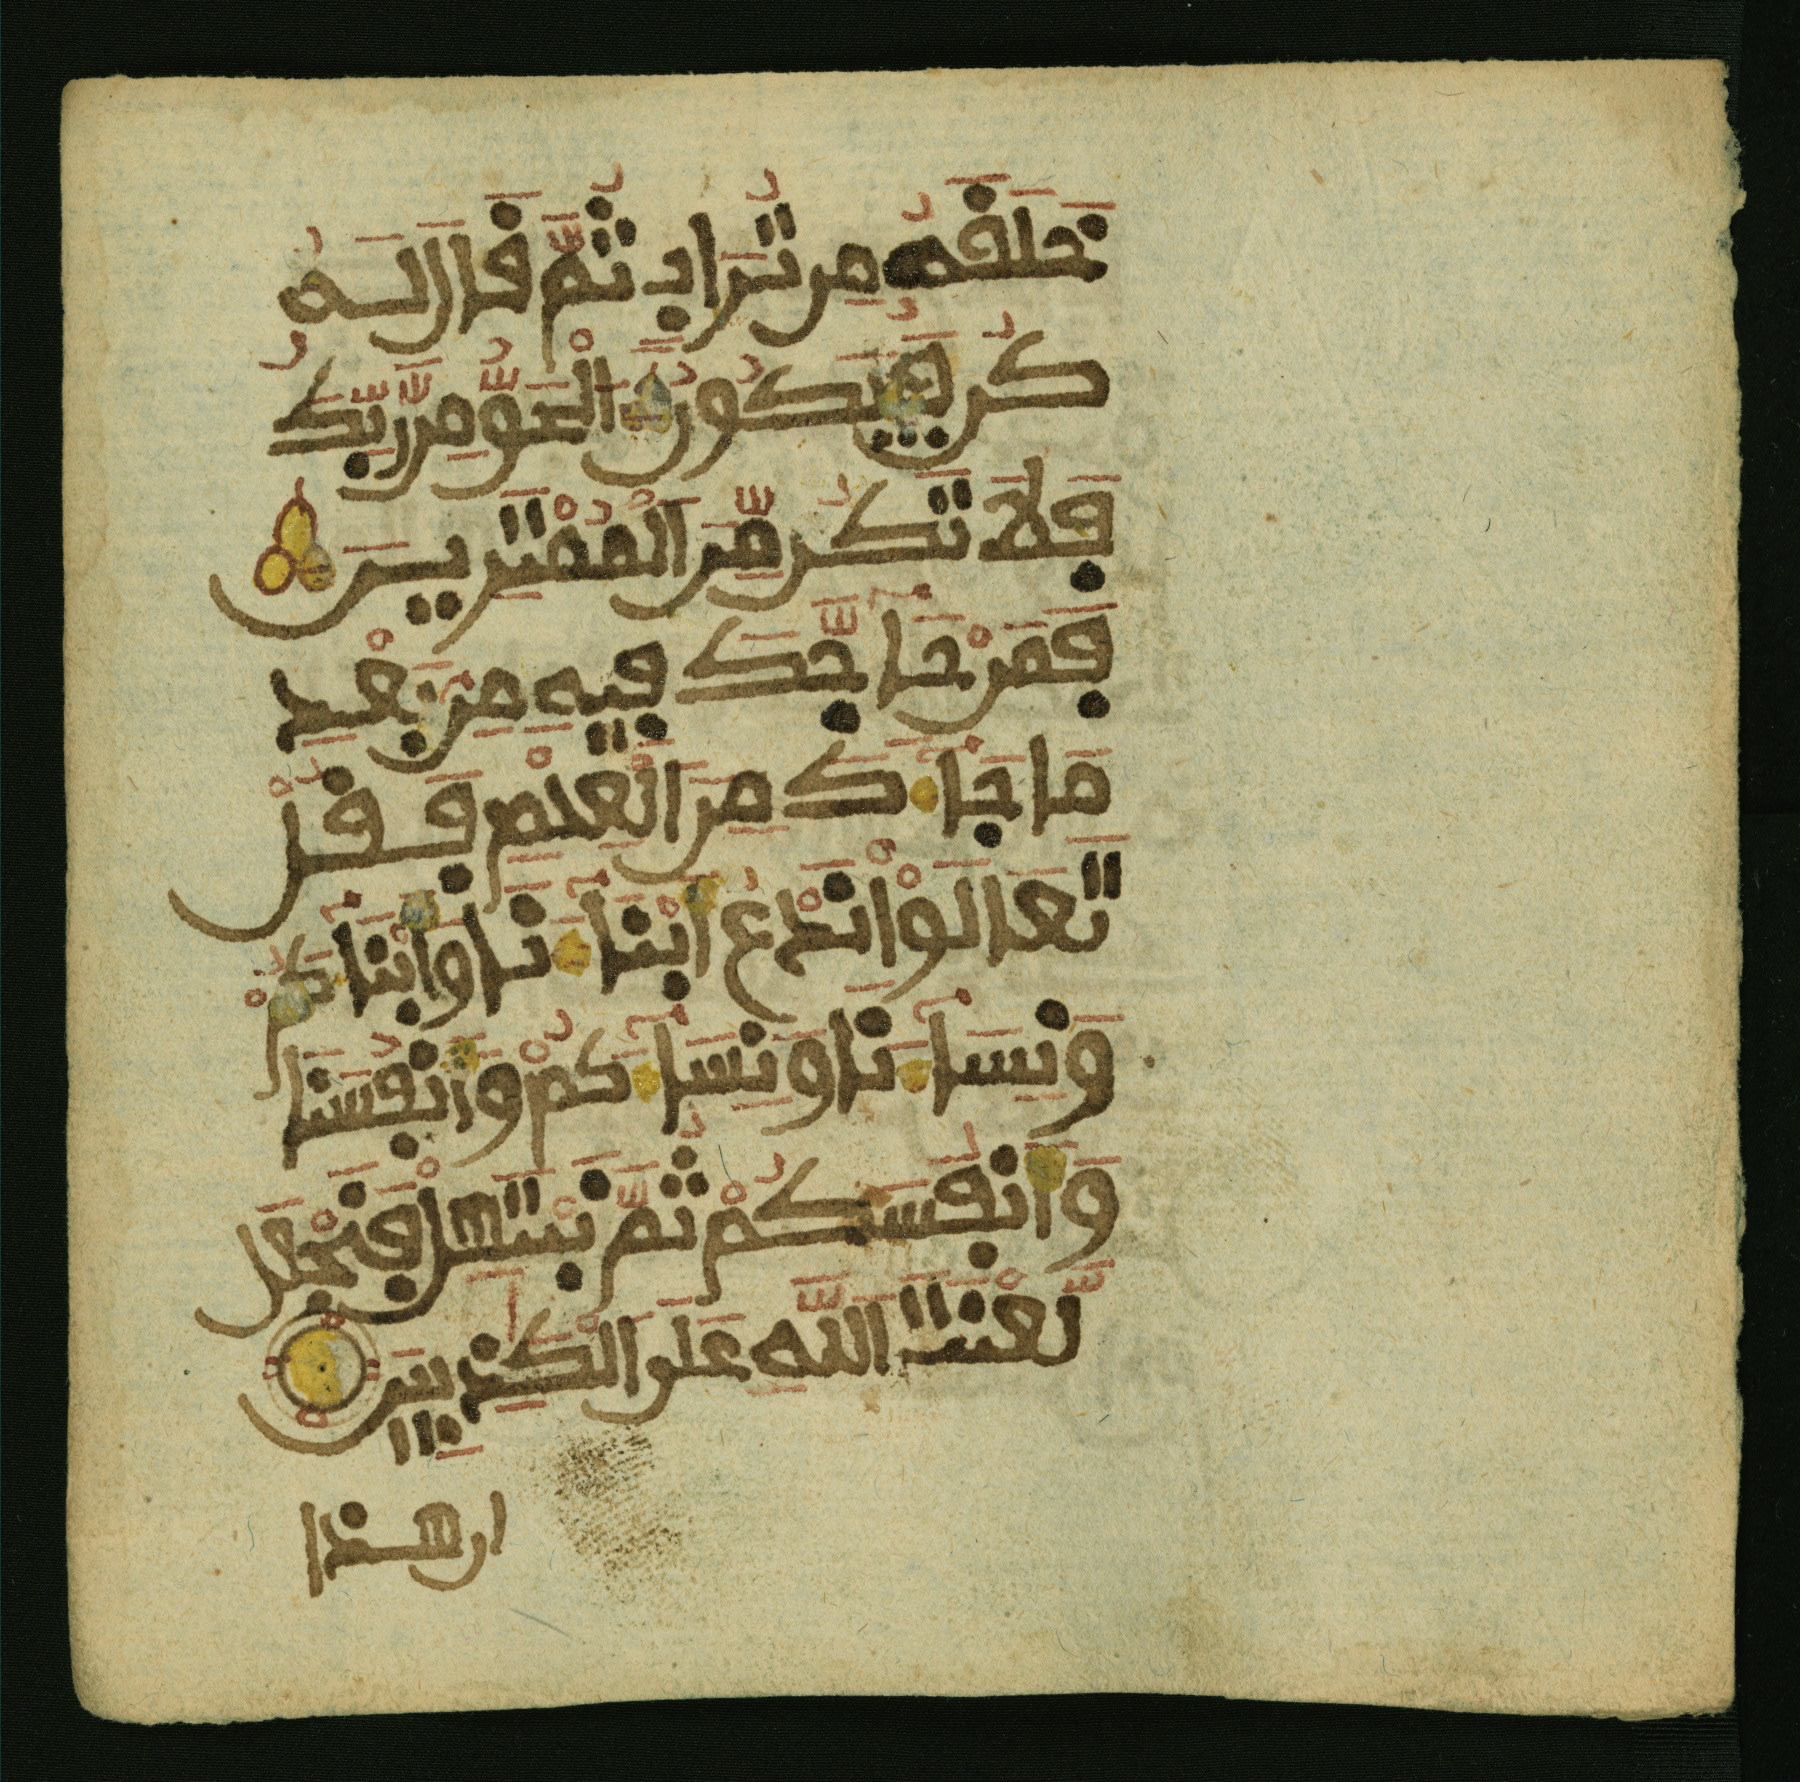 خَلَفَهُ مِن تُرَابٍ ثُمَّ فَالَ لَهُ
كُن بَيَكُونُ اَ۬لْحَقُّ مِن رَّبِّكَ
بَلَا تَكُن مِّنَ اَ۬لْمُمْتَرِينَ
بَمَنْ حَآجَّكَ بِيهِ مِنۢ بَعْدِ
مَا جَآءَكَ مِنَ اَ۬لْعِلْمِ بَفُلْ
تَعَالَوْا نَدْعُ أَبْنَآءَنَا وَأَبْنَآءَكُمْ
وَنِسَآءَنَا وَنِسَآءَكُمْ وَأَنبُسَنَا
وَأَنبُسَكُمْ ثُمَّ نَبْتَهِلْ بَنَجْعَل
لَّعْنَتَ اَ۬للَّهِ عَلَى اَ۬لْكَٰذِبِينَ
ان هذا